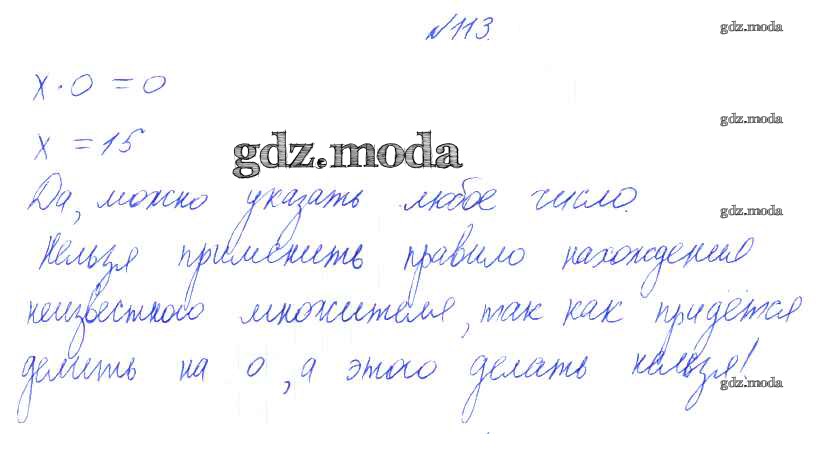 №113.
gdz.moda
x·0 = 0
gdz.moda
x = 15
gdz.moda
Да, можно указать любое число.
gdz.moda
Нельзя применить правило нахождения
неизвестного множителя, так как придётся
делить на 0, а этого делать нельзя!
gdz.moda